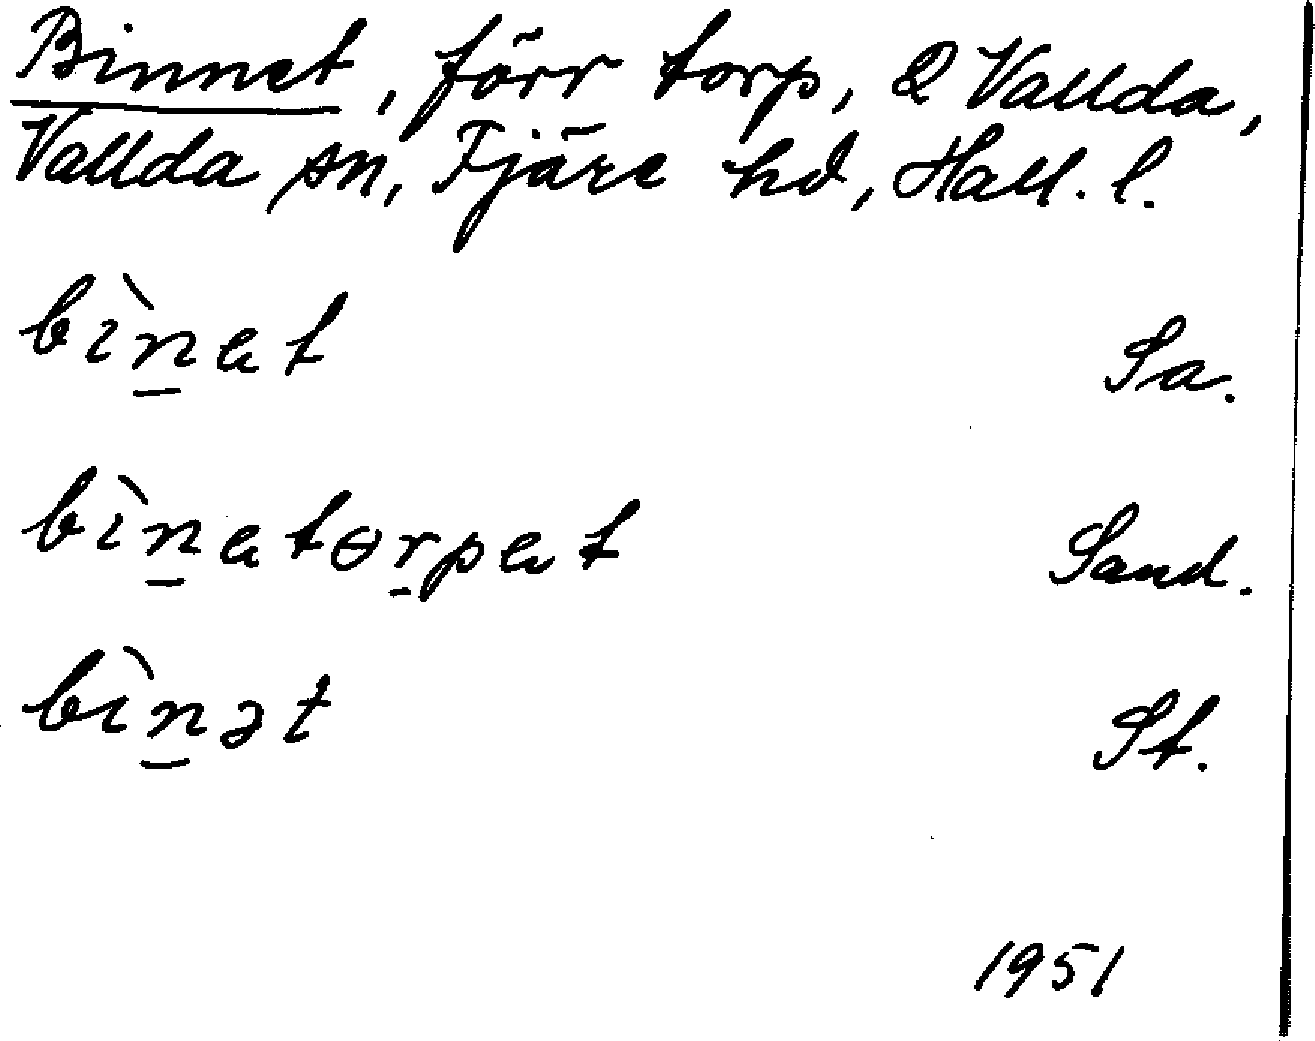 Binnet, förr torp, 2 Vallda,
Vallda sn, Fjäre hd, Hall. l.
bìn̲ɐt Sa.
bìn̲ɐtɵr̲pɐt Sand.
bìn̲ət St.
1951